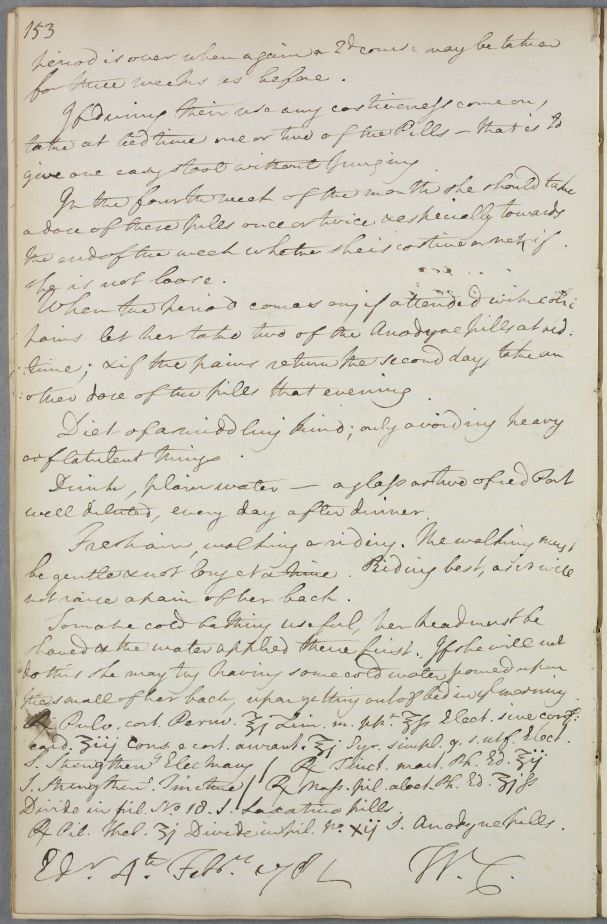 153
period is over when again a 2d course may be taken
for three weeks as before.
If during their use any costiveness come on,
take at bed time one or two of the Pills – that is to
give one easy stool without purging
In the fourth week of the month she should take
a dose of these pills once or twice & especially towards
the end of the week whether she is costive or not, if
she is not loose.
When the period comes on, if attended with colic
pains let her take two of the Anodyne pills at bed
time; & if the pains return the second day, take an
other dose of the pills that evening.
Diet of a middling kind; only avoiding heavy
or flatulent things.
Drink, plain water — a glass or two of red Port
well diluted, every day after dinner.
Fresh air, walking or riding. The walking must
be gentle & not long at a time. Riding best, as it will
not raise a pain of her back.
To make cold bathing useful, her head must be
shaved & the water applied there first. If she will not
do this she may try having some cold water poured upon
the small of her back, upon getting out of bed in ye morning.
℞ Pulv. cort. Peruv. ℥j Lim. m. ppt ℥ss Elect. sine conf:
card. ℥iij Cons. e cort. aurant. ℥j Syr. simpl. q. s. ut f. Elect.
S. Strengtheng Electuary / ℞ Tinct. mart. Ph. Ed. ℥ij
S. strengtheng Tincture / ℞ Mass. pil. aloet. Ph. Ed. ʒjss
Divide in pil. No 18. S. Laxative pills.
℞ Pil. Theb. ʒj Divide in pil. No xij S. Anodyne pills.
Edr 4th Febry 1781 W. C.